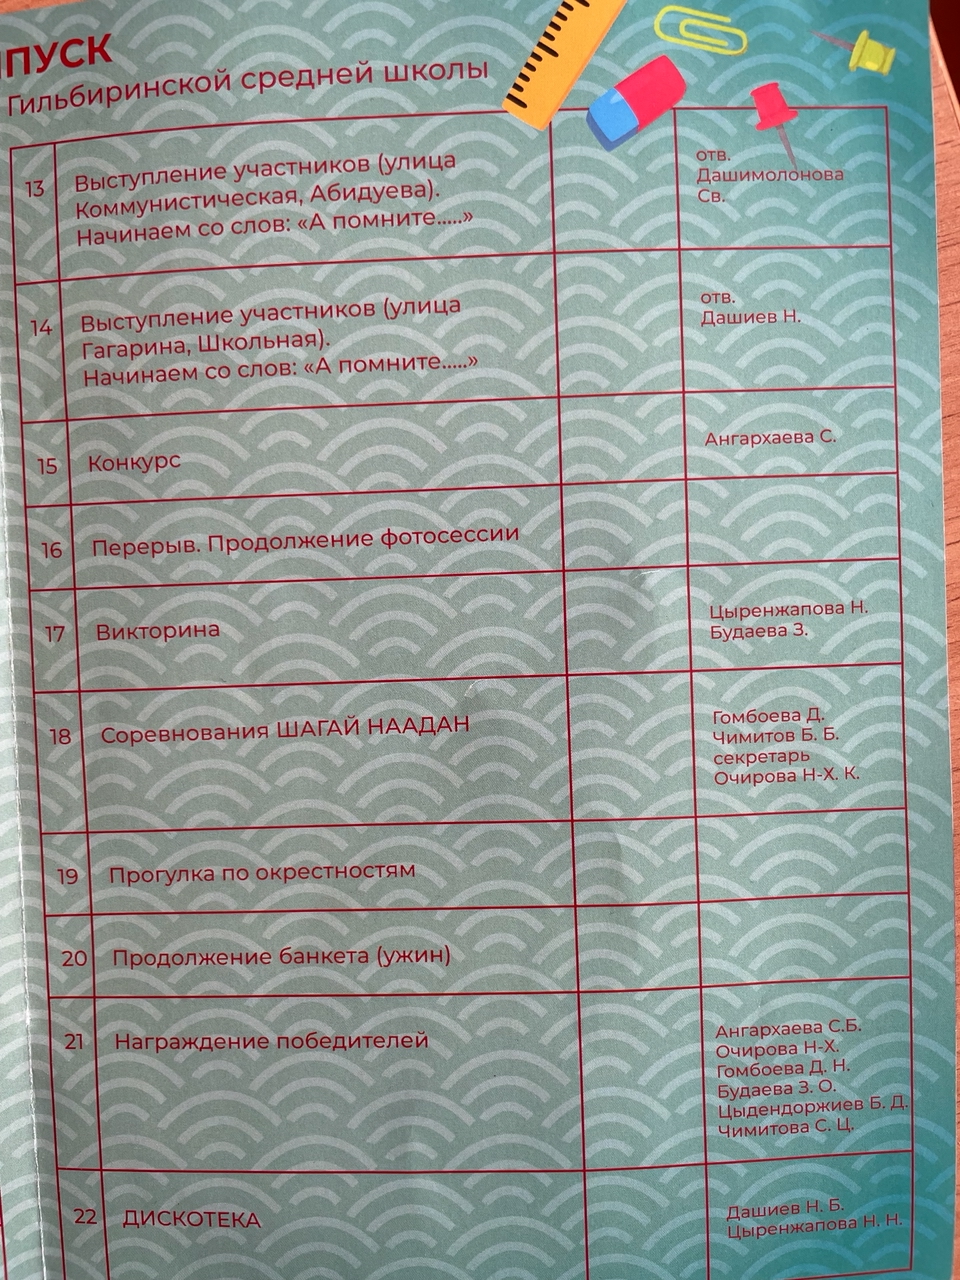 ПУСК
Гильбиринской средней школы
13
Выступление участников (улица
Коммунистическая, Абидуева).
Начинаем со слов: «А помните.....»
отв.
Дашимолонова
Св.
14
Выступление участников (улица
Гагарина, Школьная).
Начинаем со слов: «А помните.....»
отв.
Дашиев Н.
15
Конкурс
Ангархаева С.
16
Перерыв. Продолжение фотосессии
17
Викторина
Цыренжапова Н.
Будаева З.
18
Соревнования ШАГАЙ НААДАН
Гомбоева Д.
Чимитов Б. Б.
секретарь
Очирова Н-Х. К.
19
Прогулка по окрестностям
20
Продолжение банкета (ужин)
21
Награждение победителей
Ангархаева С.Б.
Очирова Н-Х.
Гомбоева Д. Н.
Будаева З. О.
Цыдендоржиев Б. Д.
Чимитова С. Ц.
22
ДИСКОТЕКА
Дашиев Н. Б.
Цыренжапова Н. Н.